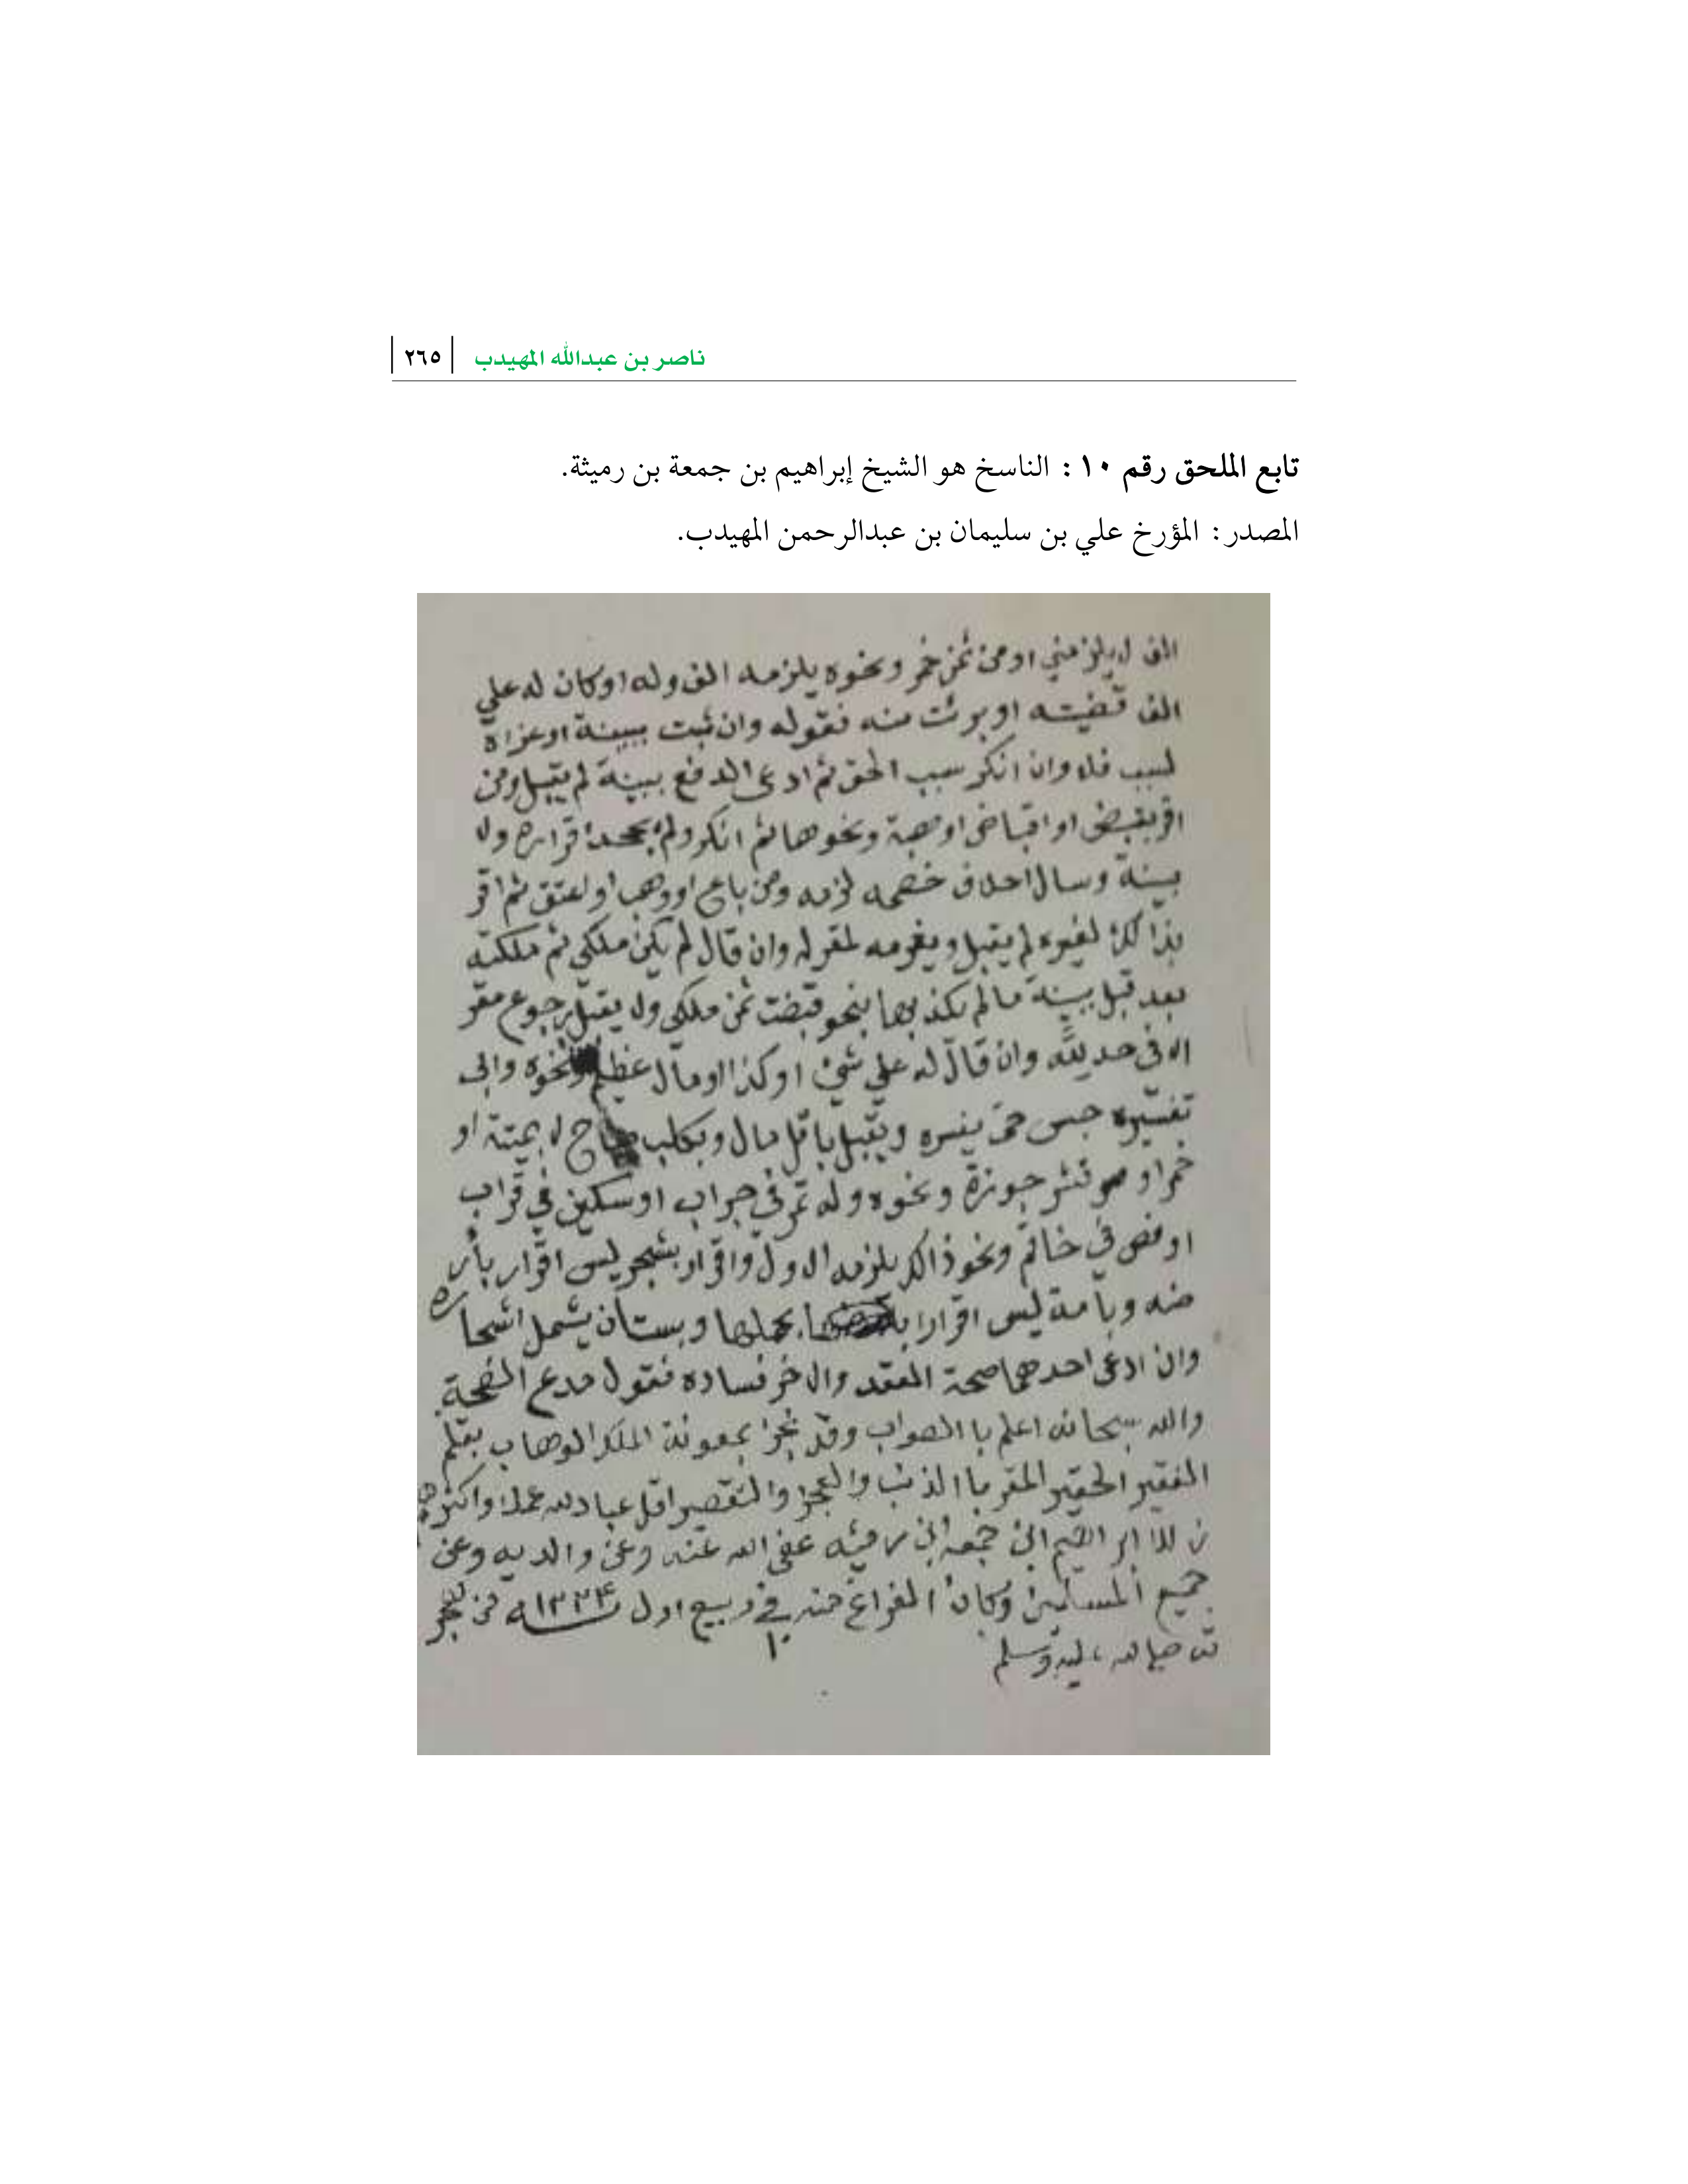 ناصر بن عبدالله المهيدب ٢٦٥
تابع الملحق رقم ١٠ : الناسخ هو الشيخ إبراهيم بن جمعة بن رميثة.
المصدر : المؤرخ علي بن سليمان بن عبدالرحمن المهيدب.
الف لا يلزمني او من ثمن خمر ونحوه يلزمه الف وله او كان له علي
الف قضيته او برئت منه فقوله وان ثبت ببينة او عزاه
لسبب فلا وان انكر سبب الحق ثم ادعى الدفع ببينة لم يقبل ومن
اقر بقبض او اقباض او هبة ونحوها ثم انكر ولم يجحد اقراره ولا
بينة وسال احلاف خصمه لزمه ومن باع او وهب او اعتق ثم اقر
بذالك لغيره لم يقبل ويغرمه لمقر له وان قال لم يكن ملكي ثم ملكته
بعد قبل ببينة مالم يكذبها بنحو قبضت ثمن ملكي ولا يقبل رجوع مقر
الا في حد لله وان قال له علي شيء او كذا او مال عظيم ونحوه وابى
تفسيره حبس حتى يفسره ويقبل باقل مال وبكلب مباح لا بميتة او
خمر او قشر جوزة ونحوه وله تمر في جراب او سكين في قراب
او فص في خاتم ونحو ذالك يلزمه الاول واقرار بشجر ليس اقرار بأر
ضه وبأمة ليس اقرارا بحملها وبستان يشمل اشجاره
وان ادعى احدهما صحة العقد والاخر فساده فقول مدع الصحة
والله سبحانه اعلم باالصواب وقد نجز بمعونة الملك الوهاب بقلم
الفقير الحقير المقر باالذنب والعجز والتقصير اقل عباد الله عملا واكثرهم
زللا ابراهيم ابن جمعه ابن رميثه عفى الله عنه وعن والديه وعن
جميع المسلمين وكان الفراغ منه في ١٠ ربيع اول سنة ١٣٣٤ من هجر
ته صلى الله عليه وسلم